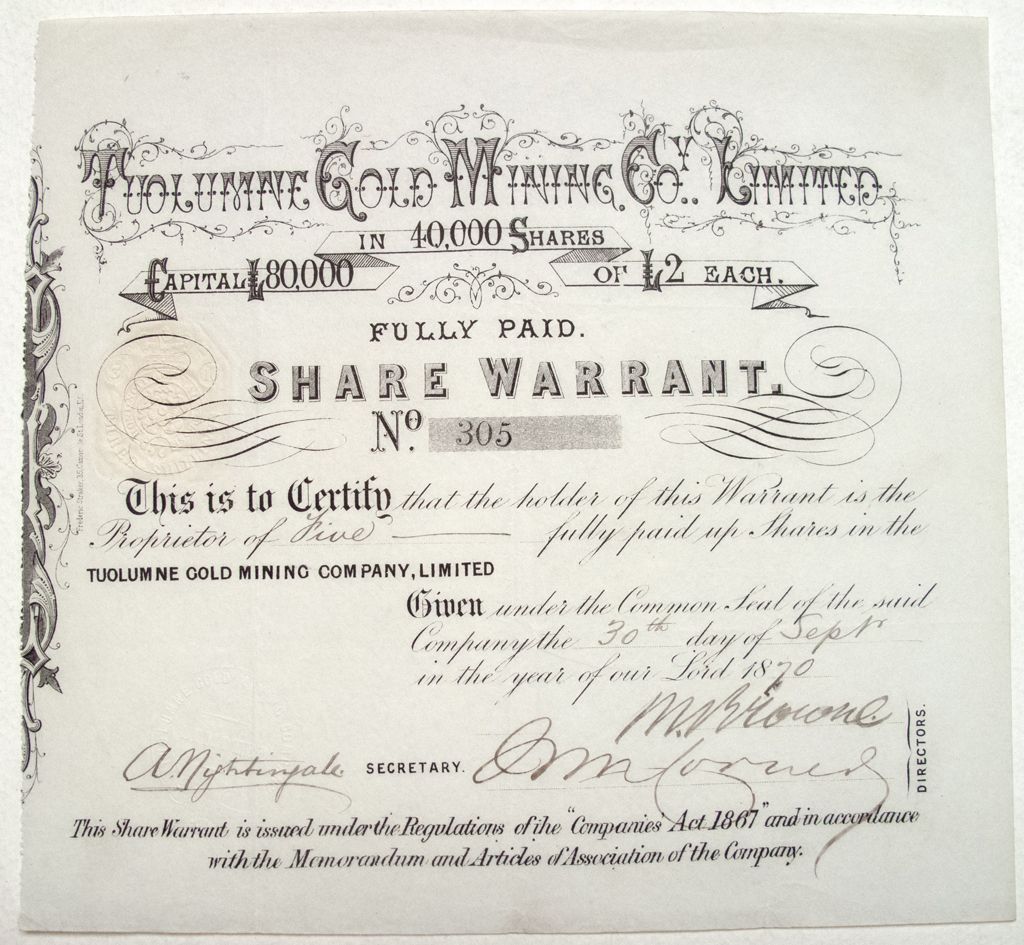 TUOLUMNE GOLD MINING COY. LIMITED.
IN 40,000 SHARES
CAPITAL £80,000 OF £2 EACH.
FULLY PAID.
SHARE WARRANT.
No. 305
This is to Certify that the holder of this Warrant is the
Proprietor of Five fully paid up Shares in the
TUOLUMNE GOLD MINING COMPANY, LIMITED
Given under the Common Seal of the said
Company the 30th day of Sept
in the year of our Lord 1870
M. Browne
A. Nightingale SECRETARY.
DIRECTORS.
This Share Warrant is issued under the Regulations of the "Companies Act 1867" and in accordance
with the Memorandum and Articles of Association of the Company.